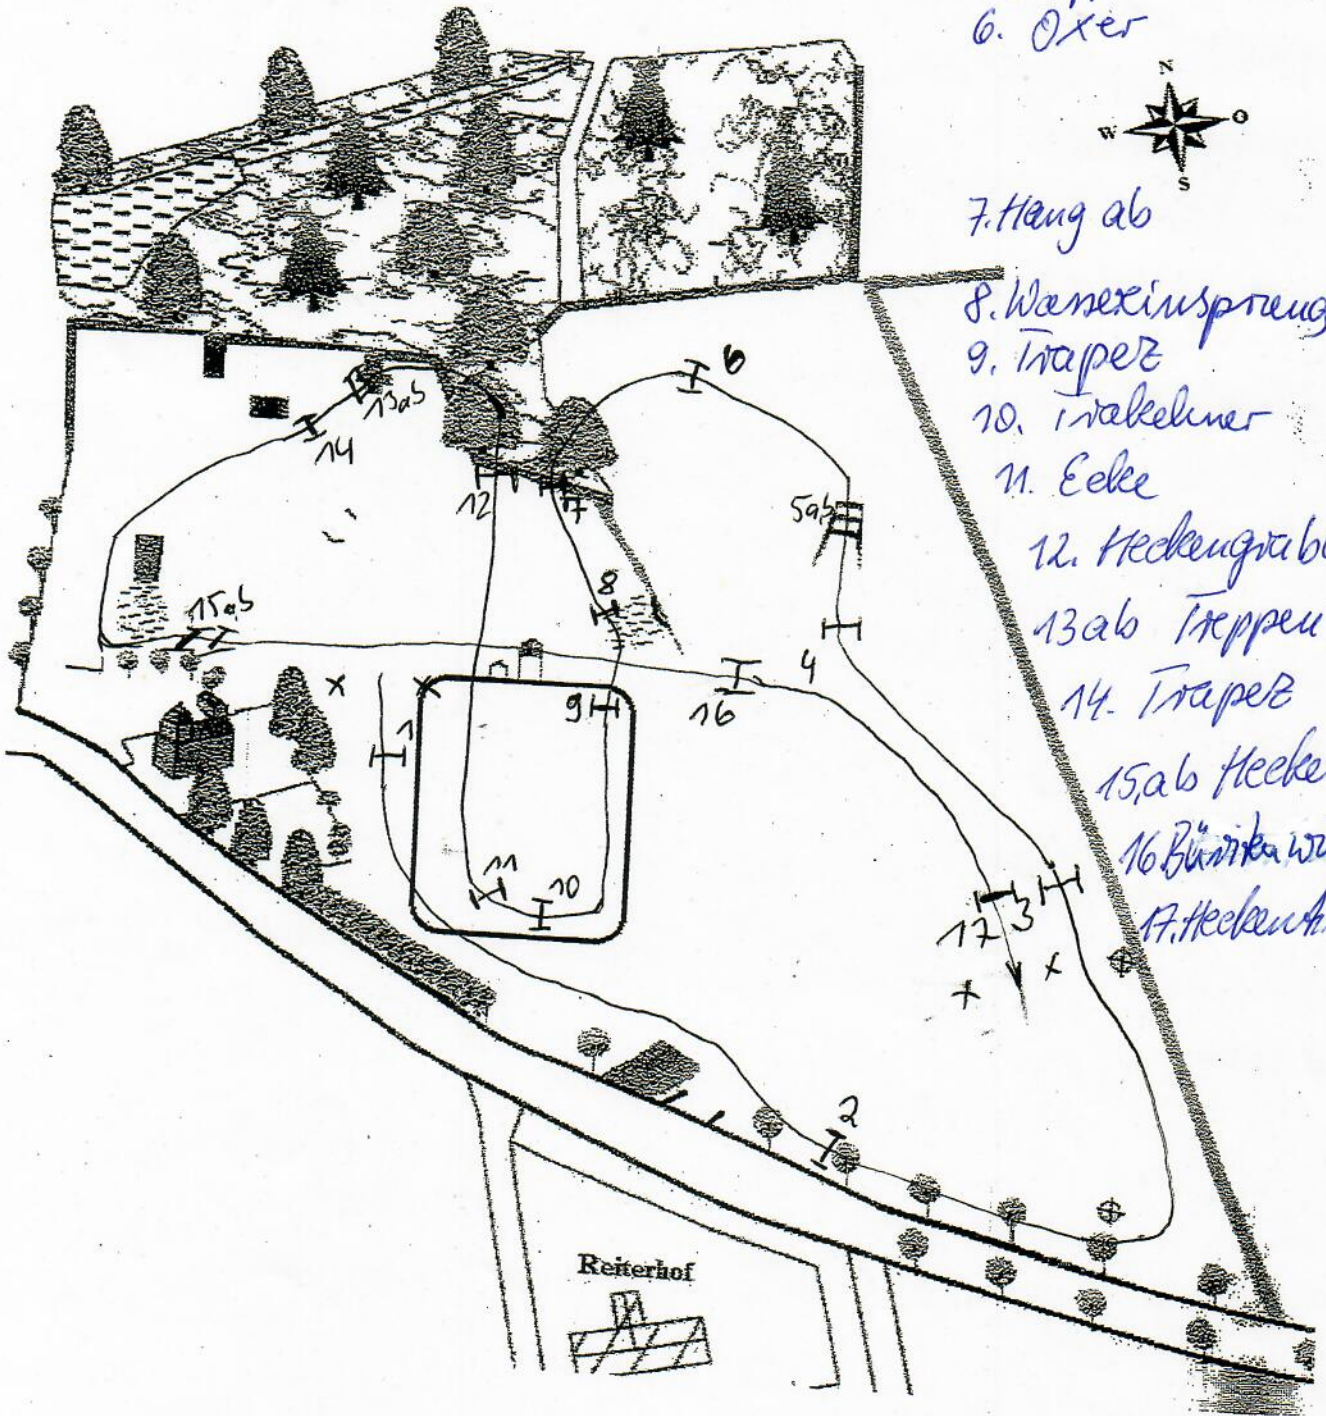 6. Oxer
N
W
O
S
7. Hang ab
8. Wassereinsprung
9. Trapez
10. Trakehner
11. Ecke
12. Heckengrab
13ab Treppen
14. Trapez
15,ab Hecke
16
17. Hecken
6
13ab
14
12
7
5ab
8
15ab
4
16
9
1
11
10
17
3
2
Reiterhof